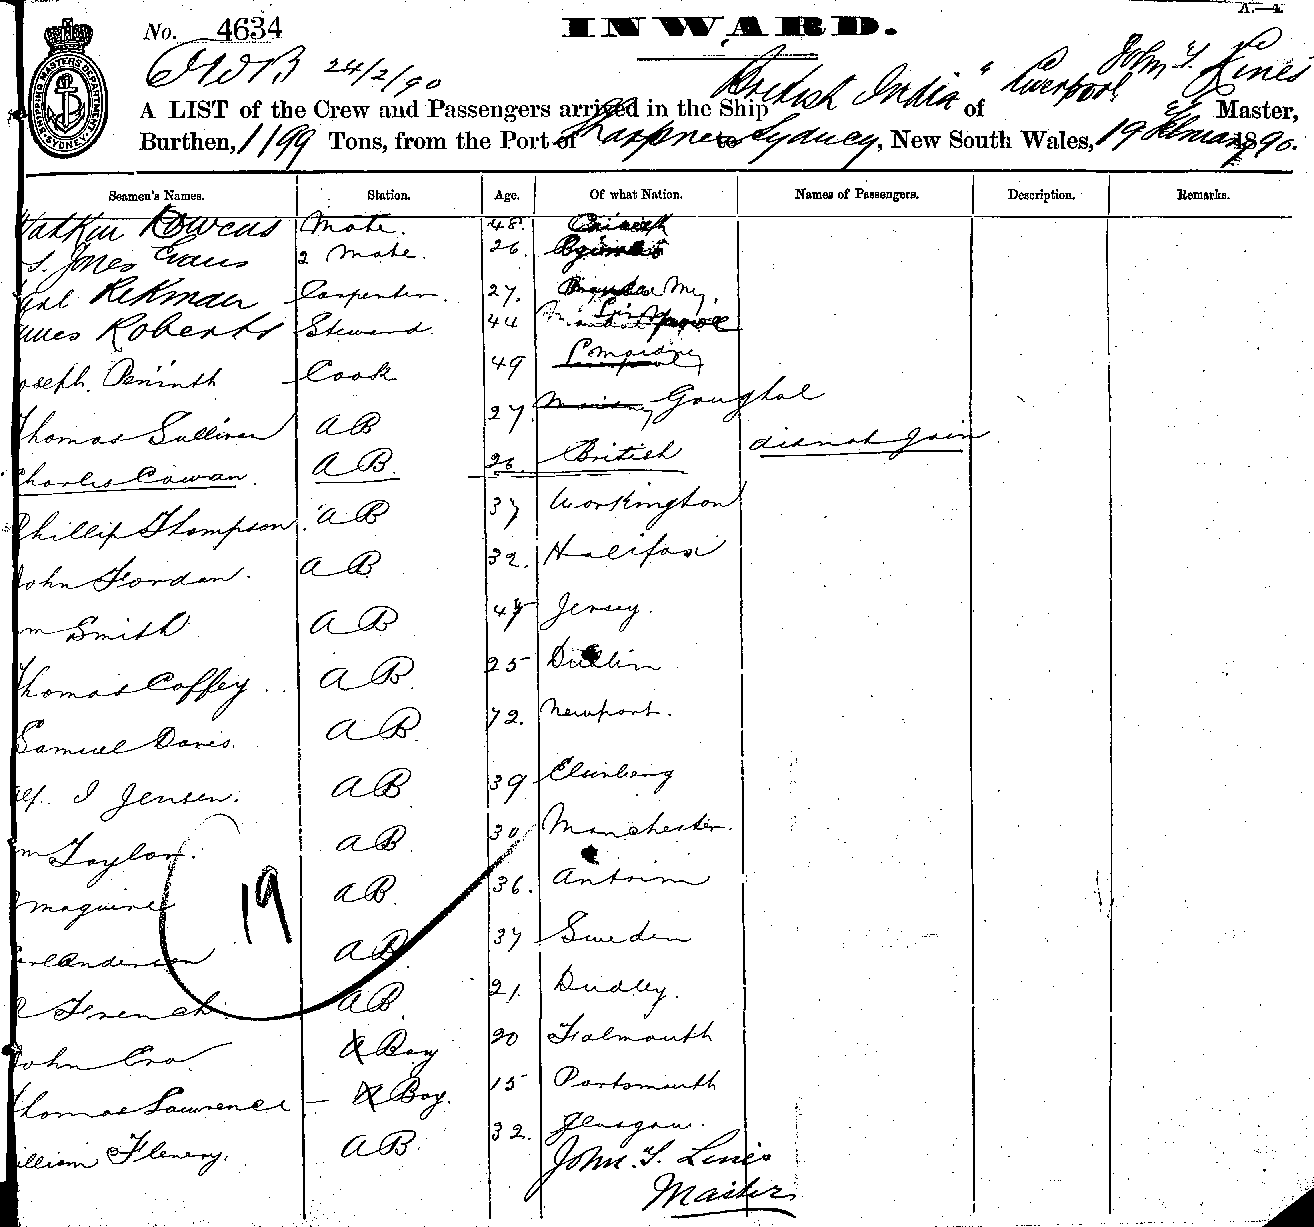 No. 4634
INWARD.
A.—1.
SHIPPING MASTERS DEPARTMENT SYDNEY
24/2/90
John T. Lines
A LIST of the Crew and Passengers arrived in the Ship British India of Liverpool Master,
Burthen, 1199 Tons, from the Port of Sharpness to Sydney, New South Wales, 19 February 1890.
Seamen's Names. Station. Age. Of what Nation. Names of Passengers. Description. Remarks.
Mate. 48.
Jones Evans 2 Mate. 26
Carpenter. 27.
Roberts Steward 44
oseph Cook 49
Thomas Sullivan AB 27 Youghal
Charles Cowan. AB. 26. British did not join
Phillip Thompson AB 37 Workington
John Jordan. AB 32. Halifax
m Smith AB Jersey.
Thomas Coffey AB 25 Dublin
Samuel Davis. AB. 72. Newport.
Jensen. AB 39
m Taylor. AB. 30 Manchester.
Maguire AB. 36. Antrim
arl Anderson AB 37 Sweden
19
French. AB. 21. Dudley.
John Boy 20 Falmouth
Thomas Lawrence — Boy. 15 Portsmouth
illiam Flenery. AB. 32. Glasgow.
John. T. Lines
Master